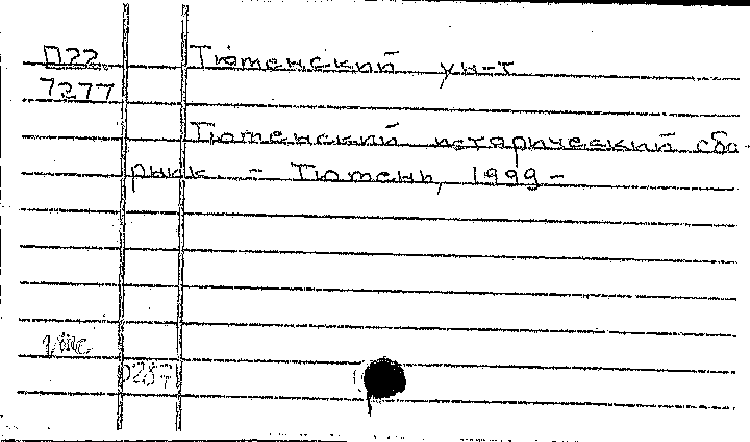 П22
7277
Тюменский ун-т
Тюменский исторический сбо-
рник. - Тюмень, 1999 -
0287